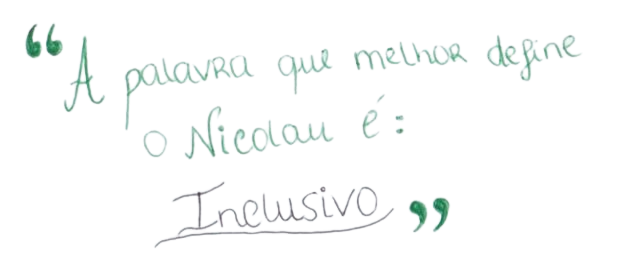 “A palavra que melhor define
o Nicolau é:
Inclusivo”